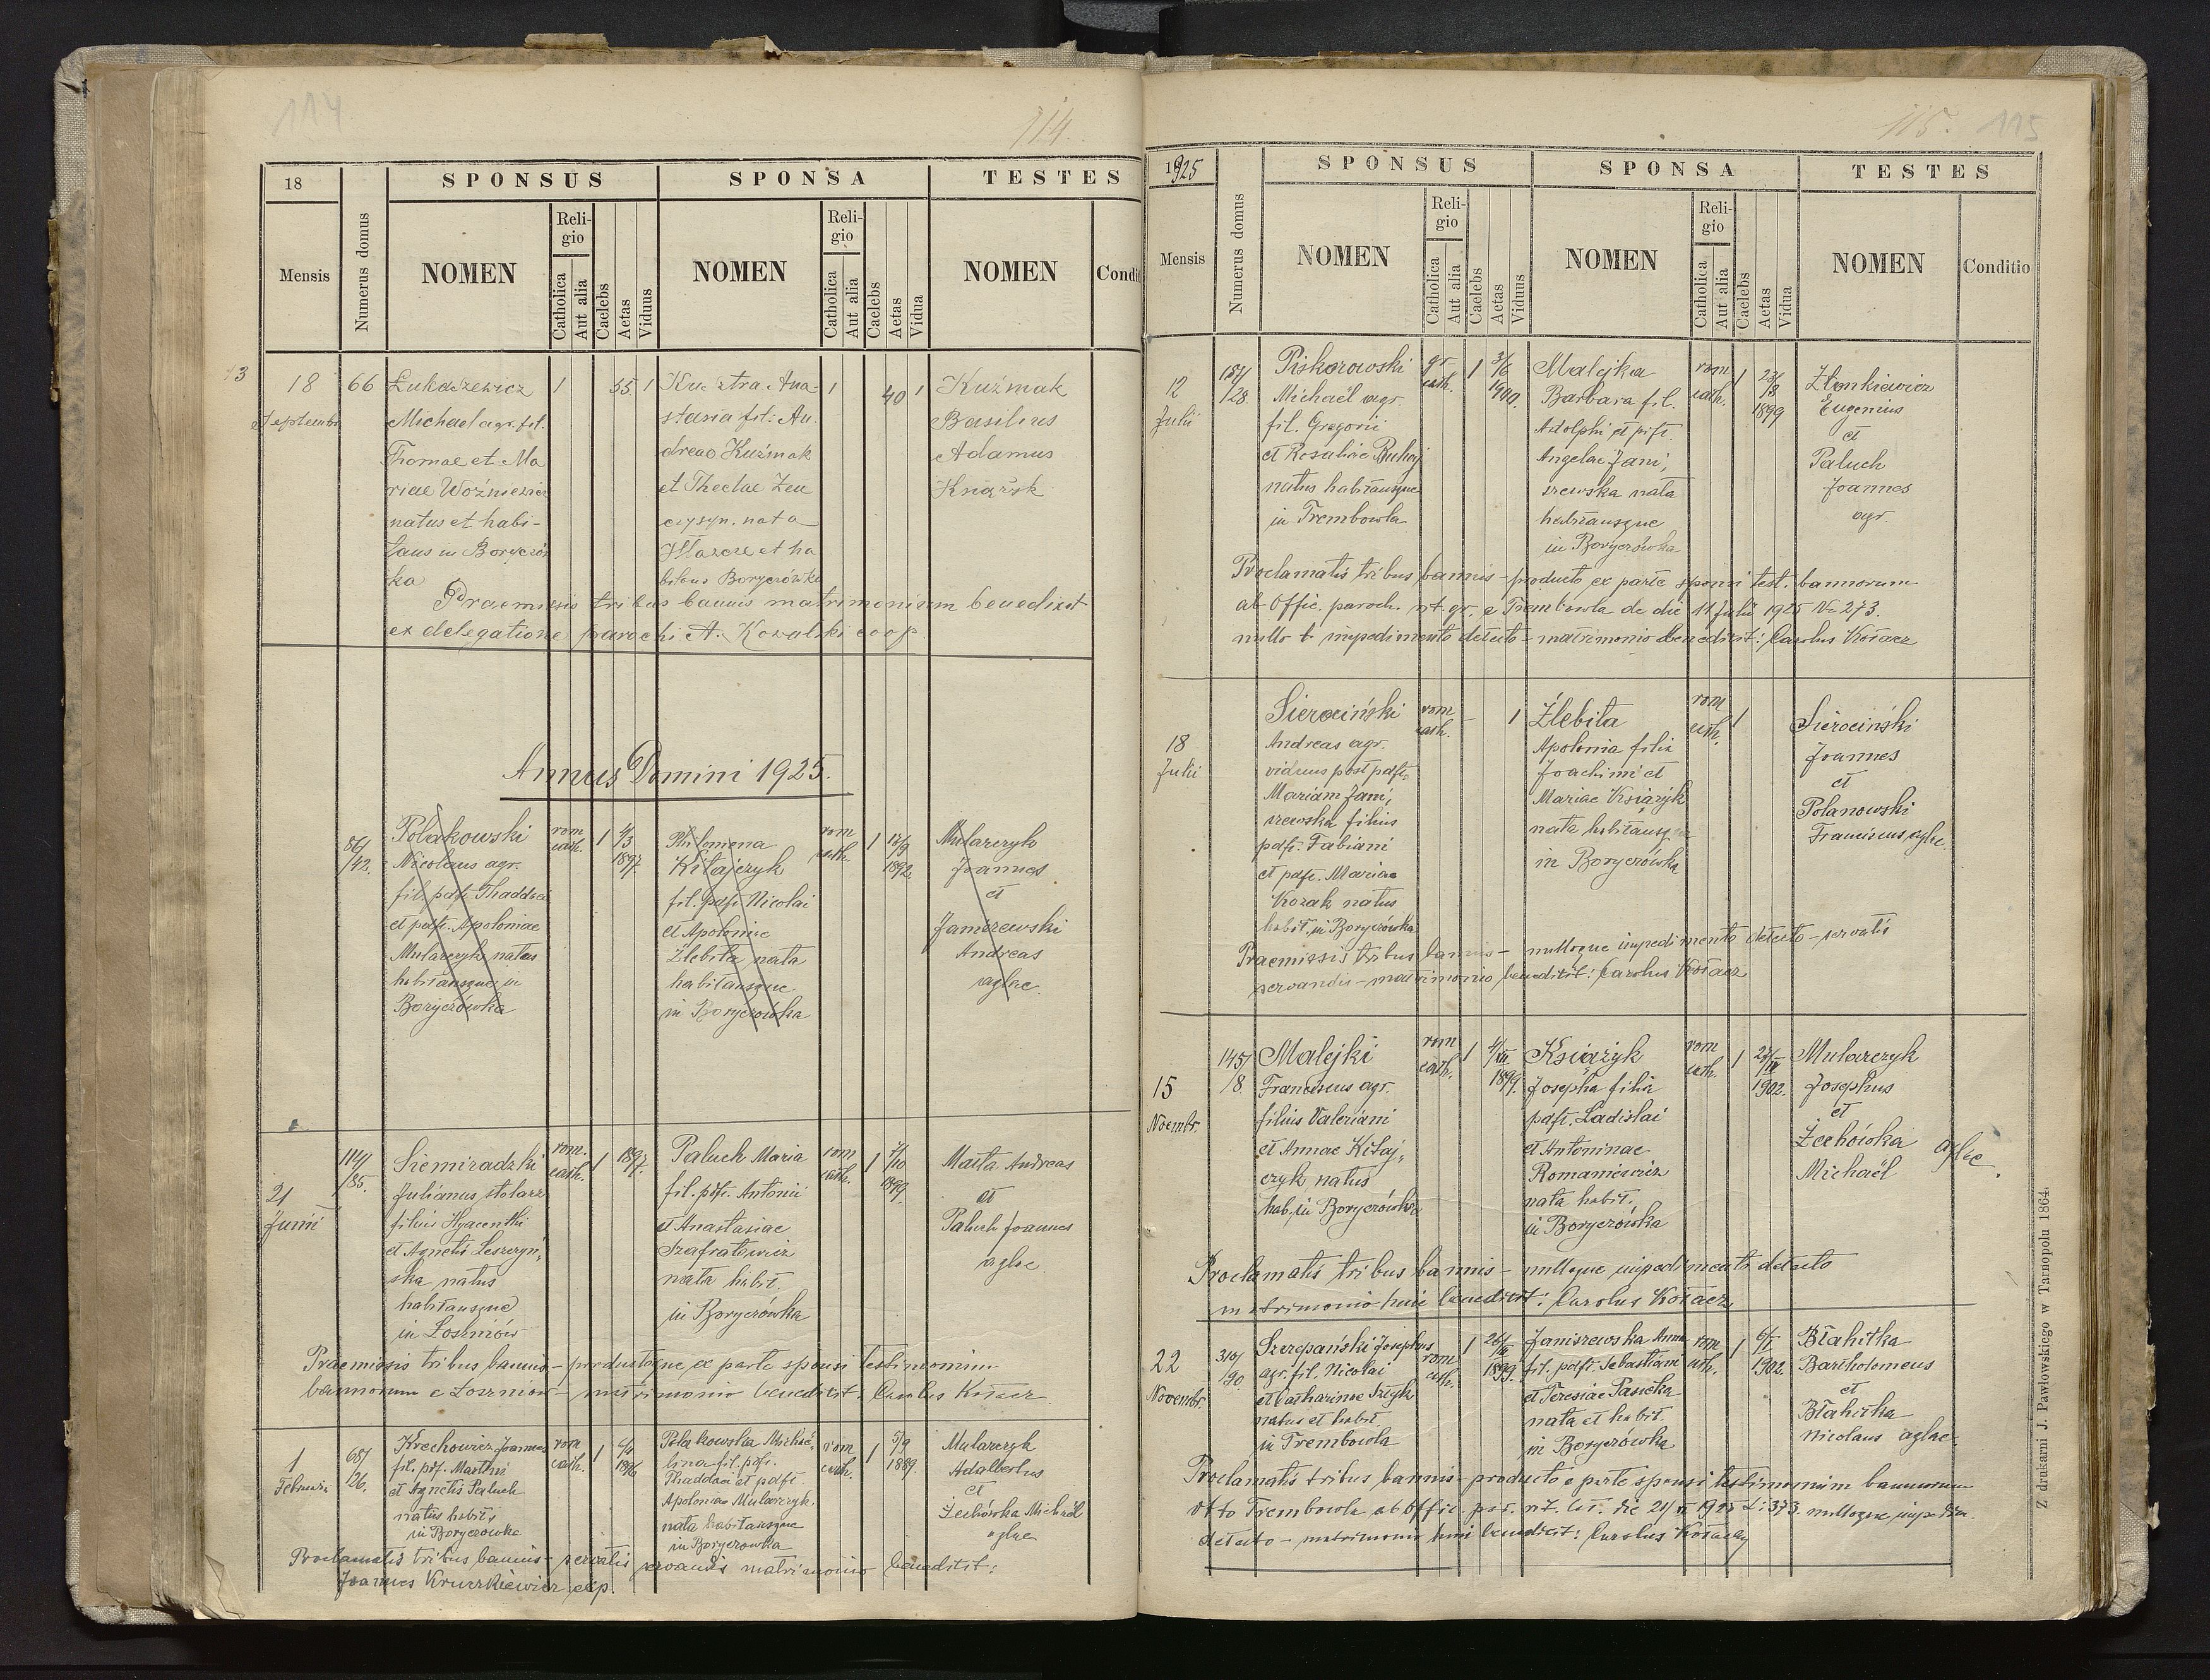 114
114.
18
SPONSUS
SPONSA
TESTES
Mensis
Numerus domus
NOMEN
Religio
Catholica
Aut alia
Caelebs
Aetas
Viduus
NOMEN
Religio
Catholica
Aut alia
Caelebs
Aetas
Vidua
NOMEN
Condit
13
18
Septembr
66
Łukaszewicz
Michael agr. fil.
Thomae et Ma
riae Woźniewicz
natus et habi-
tans in Boryczów
ka
1
55
1
Kusztra Ana-
stasia fil. An
dreae Kuźmak
et Theclae
nata
et ha
bitans Boryczówka
1
40
1
Kuźmak
Basilius
Adamus
Książek
Praemissis tribus bannis matrimonium benedixit
ex delegatione parochi A. Kowalski coop.
Annus Domini 1925.
86/
/42.
Polakowski
Nicolaus agr.
fil. pdf. Thaddaei
et pdft. Apoloniae
Mularczyk natus
habitansque in
Boryczówka
rom
cath.
1
4/3
1897.
Philomena
Kitajczyk
fil. pdft. Nicolai
et Apoloniae
Żlebita nata
habitansque
in Boryczówka
rom
cath.
1
1892
Mularczyk
Joannes
et
Janiszewski
Andreas
aglae.
21
Junii
114/
/85.
Siemiradzki
Julianus stolarz
filius Hyacinthi
et Agnetis Leszczyń-
ska natus
habitansque
in Łoszniów
rom.
cath.
1
1897.
Paluch Maria
fil. pdft. Antonii
et Anastasiae
Szafratowicz
nata habit.
in Boryczówka
rom
cath.
1
7/10
1899.
Malta Andreas
et
Paluch Joannes
aglae
Praemissis tribus bannis - productoque ex parte sponsi testimonium
bannorum e Łoszniów - matrimonio benedixit: Carolus Kotacz
1
Februarii
68/
126.
Krechowicz Joannes
fil. pdf. Matthi
et Agnetis Paluch
natus habit.
in Boryczówka
rom
cath.
1
1896
Polakowska Michae-
lina fil. pdft.
Thaddaei et pdft
Apoloniae Mularczyk
nata habitansque
in Boryczówka
rom
cath.
1
5/9
1889.
Mularczyk
Adalbertus
et
Żechówka Michaël
aglae
Proclamatis tribus bannis - servatis servandis matrimonio benedixit:
Joannes Kruszkiewicz exp.
115.
115
1925
SPONSUS
SPONSA
TESTES
Mensis
Numerus domus
NOMEN
Religio
Catholica
Aut alia
Caelebs
Aetas
Viduus
NOMEN
Religio
Catholica
Aut alia
Caelebs
Aetas
Vidua
NOMEN
Conditio
12
Julii
157/
/28.
Piskorowski
Michaël agr.
fil. Gregorii
et Rosaliae Buhaj
natus habitansque
in Trembowla
gr.
cath.
1
3/6
1900.
Malejka
Barbara fil.
Adolphi et pdft.
Angelae Jani-
szewska nata
habitansque
in Boryczówka
rom
cath.
1
23/
/8
1899
Złonkiewicz
Eugenius
et
Paluch
Joannes
agr.
Proclamatis tribus bannis - producto ex parte sponsi test. bannorum
ab Offic. paroch. rt. gr. e Trembowla de die 11 Julii 1925 No 273.
nullo b. impedimento detecto - matrimonio benedixit: Carolus Kotacz
18
Julii
Sierociński
Andreas agr.
viduus post pdft.
Mariam Jani-
szewska filius
pdft. Fabiani
et pdft. Mariae
Kozak natus
habit. in Boryczówka
rom
cath.
-
1
Żlebita
Apolonia filia
Joachimi et
Mariae Książyk
nata habitansque
in Boryczówka
rom
cath.
1
Sierociński
Joannes
et
Polanowski
Franciscus aglae.
Praemissis tribus bannis - nulloque impedimento detecto - servatis
servandis - matrimonio benedixit: Carolus Kotacz
15
Novembr.
145/
/8
Malejki
Franciscus agr.
filius Valeriani
et Annae Kitaj-
czyk natus
hab. in Boryczówka
rom
cath.
1
4/III
1899.
Książyk
Josepha filia
pdft. Ladislai
et Antoninae
Romanowicz
nata habit.
in Boryczówka
rom
cath.
1
1902.
Mularczyk
Josephus
et
Żechówka
Michaël
aglae.
Proclamatis tribus bannis - nulloque impedimento detecto
matrimonio huic benedixit: Carolus Kotacz
22
Novembr.
310/
/90
Szczepański Josephus
agr. fil. Nicolai
et Catharinae Sztyk
natus et habit.
in Trembowla
rom
cath.
1
26/
1899.
Janiszewska Anna
fil. pdft. Sebastiani
et Teresiae Pasieka
nata et habit.
in Boryczówka
rom
cath.
1
6/I
1902.
Błahitka
Bartholomeus
et
Błahitka
Nicolaus aglae.
Proclamatis tribus bannis - producto e parte sponsi testimonium bannorum
Trembowla ab Offic. par. rt. lat. die 21/ 1925 L: 373. nulloque impedim.
detecto - matrimonio huic benedixit: Carolus Kotacz
Z drukarni J. Pawłowskiego w Tarnopolu 1864.